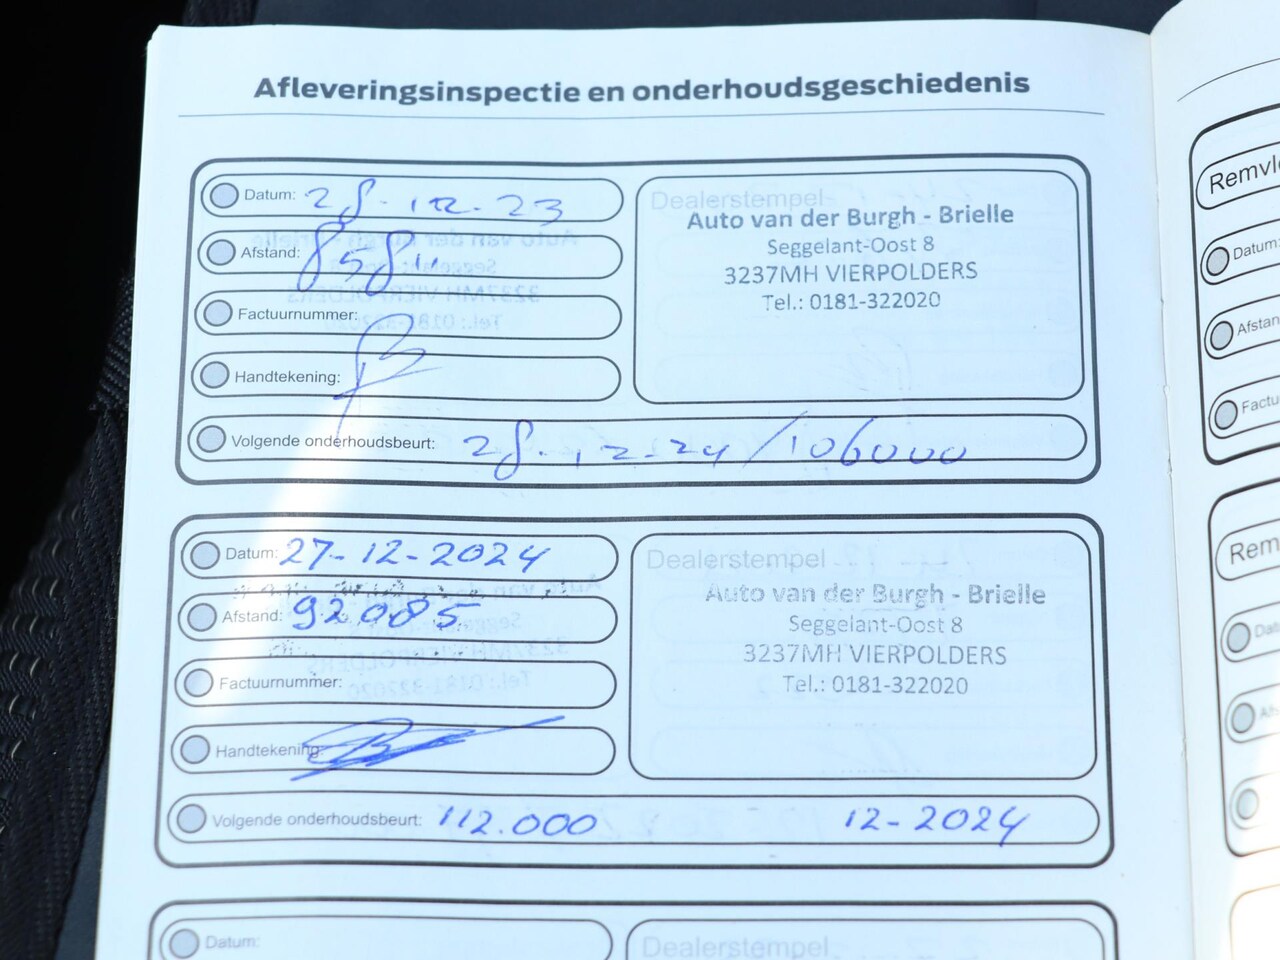 Afleveringsinspectie en onderhoudsgeschiedenis
Datum: 28-12-23
Afstand:
Factuurnummer:
Handtekening:
Volgende onderhoudsbeurt: 28-12-24/106000
Dealerstempel
Auto van der Burgh - Brielle
Seggelant-Oost 8
3237MH VIERPOLDERS
Tel.: 0181-322020
Datum: 27-12-2024
Afstand: 92085
Factuurnummer:
Handtekening:
Volgende onderhoudsbeurt: 112.000 12-2024
Dealerstempel
Auto van der Burgh - Brielle
Seggelant-Oost 8
3237MH VIERPOLDERS
Tel.: 0181-322020
Datum:
Dealerstempel
Remvl
Datum:
Afstan
Factu
Rem
Dat
Afs